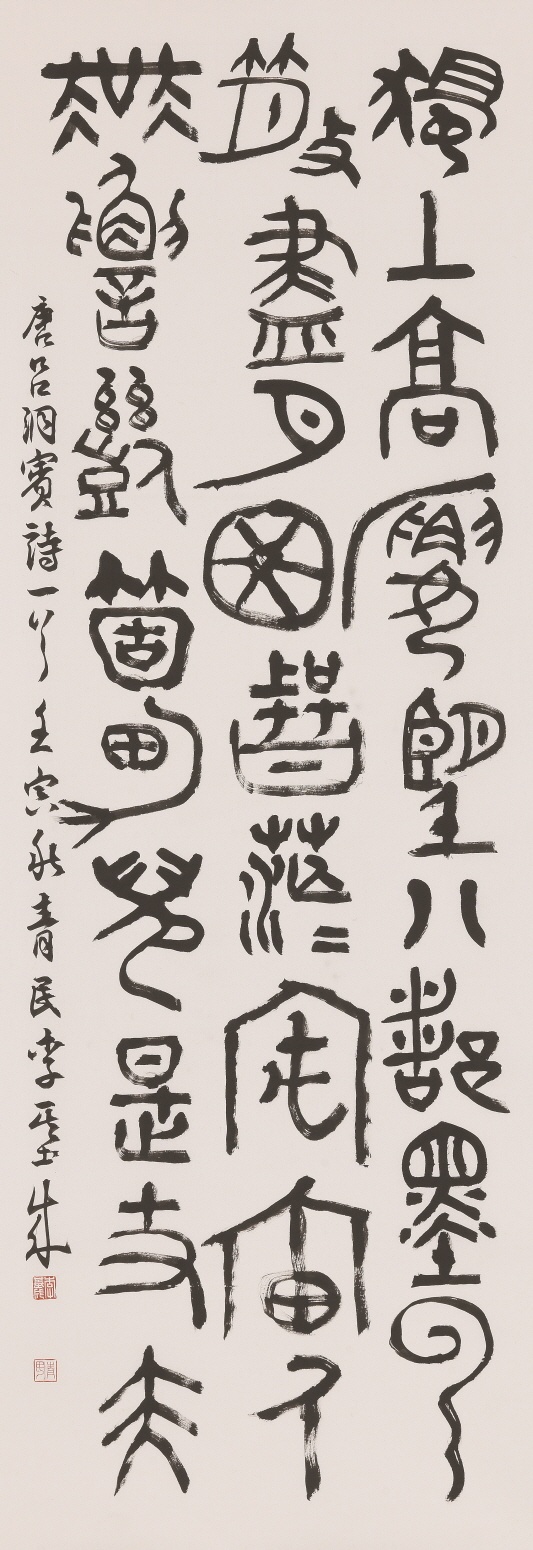 獨上高樓望八都墨雲
散盡月輪茫〻宇宙人
無數幾箇男兒是丈夫
唐吕洞賓詩一首壬寅秋青民李